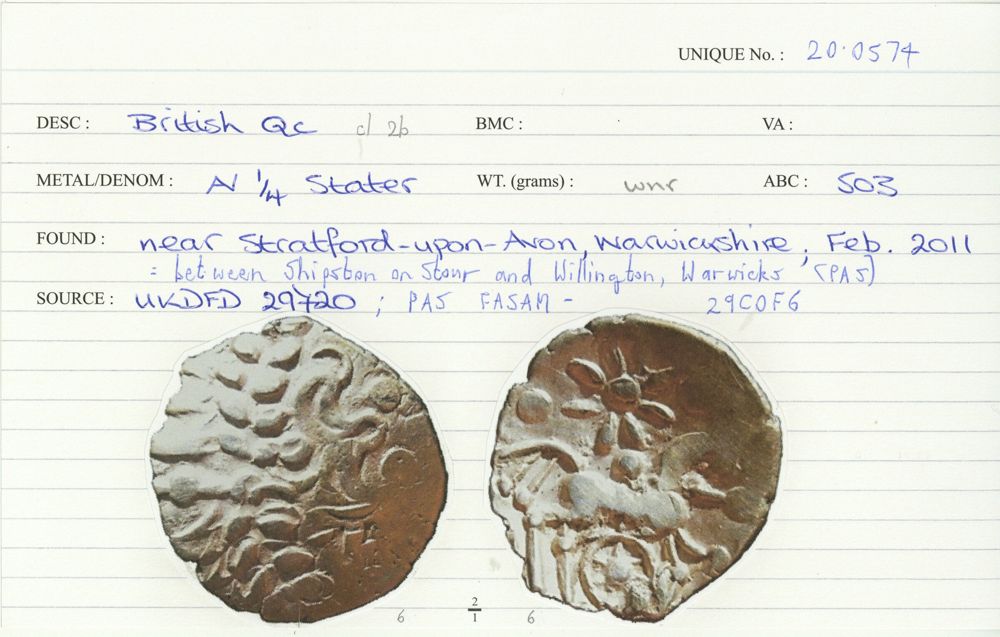 UNIQUE No. : 20·0574
DESC : British Qc c/ 2b BMC : VA :
METAL/DENOM : AV 1/4 Stater WT. (grams) : wnr ABC : 503
FOUND : near Stratford-upon-Avon, Warwickshire, Feb. 2011
= between Shipston on Stour and Willington, Warwicks (PAS)
SOURCE : UKDFD 29720 ; PAS FASAM - 29C0F6
6 2/1 6